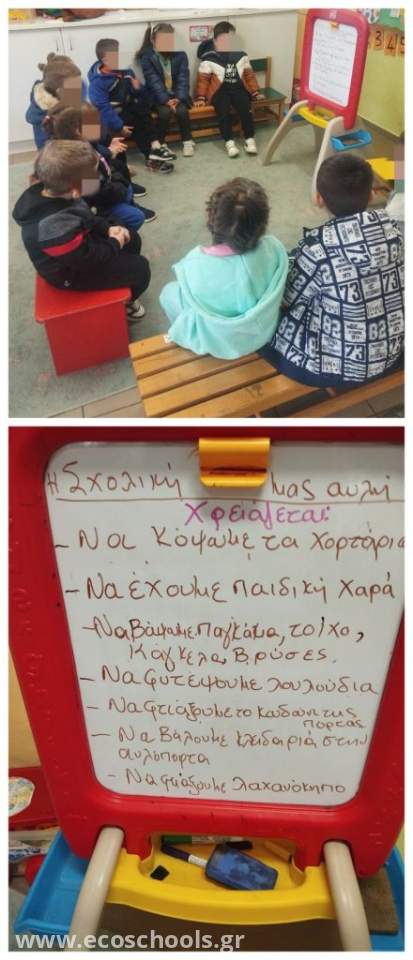 Η Σχολική μας αυλή
Χρειάζεται:
- Να κόψουμε τα χορτάρια
- Να έχουμε παιδική χαρά
- Να Βάψουμε παγκάκια, τοίχο,
κάγκελα, Βρύσες.
- Να φυτέψουμε λουλούδια
- Να φτιάξουμε το κουδούνι της
πόρτας
- Να Βάλουμε κλειδαριά στην
αυλόπορτα
- Να φτιάξουμε λαχανόκηπο
www.ecoschools.gr
73
82
3 4 5